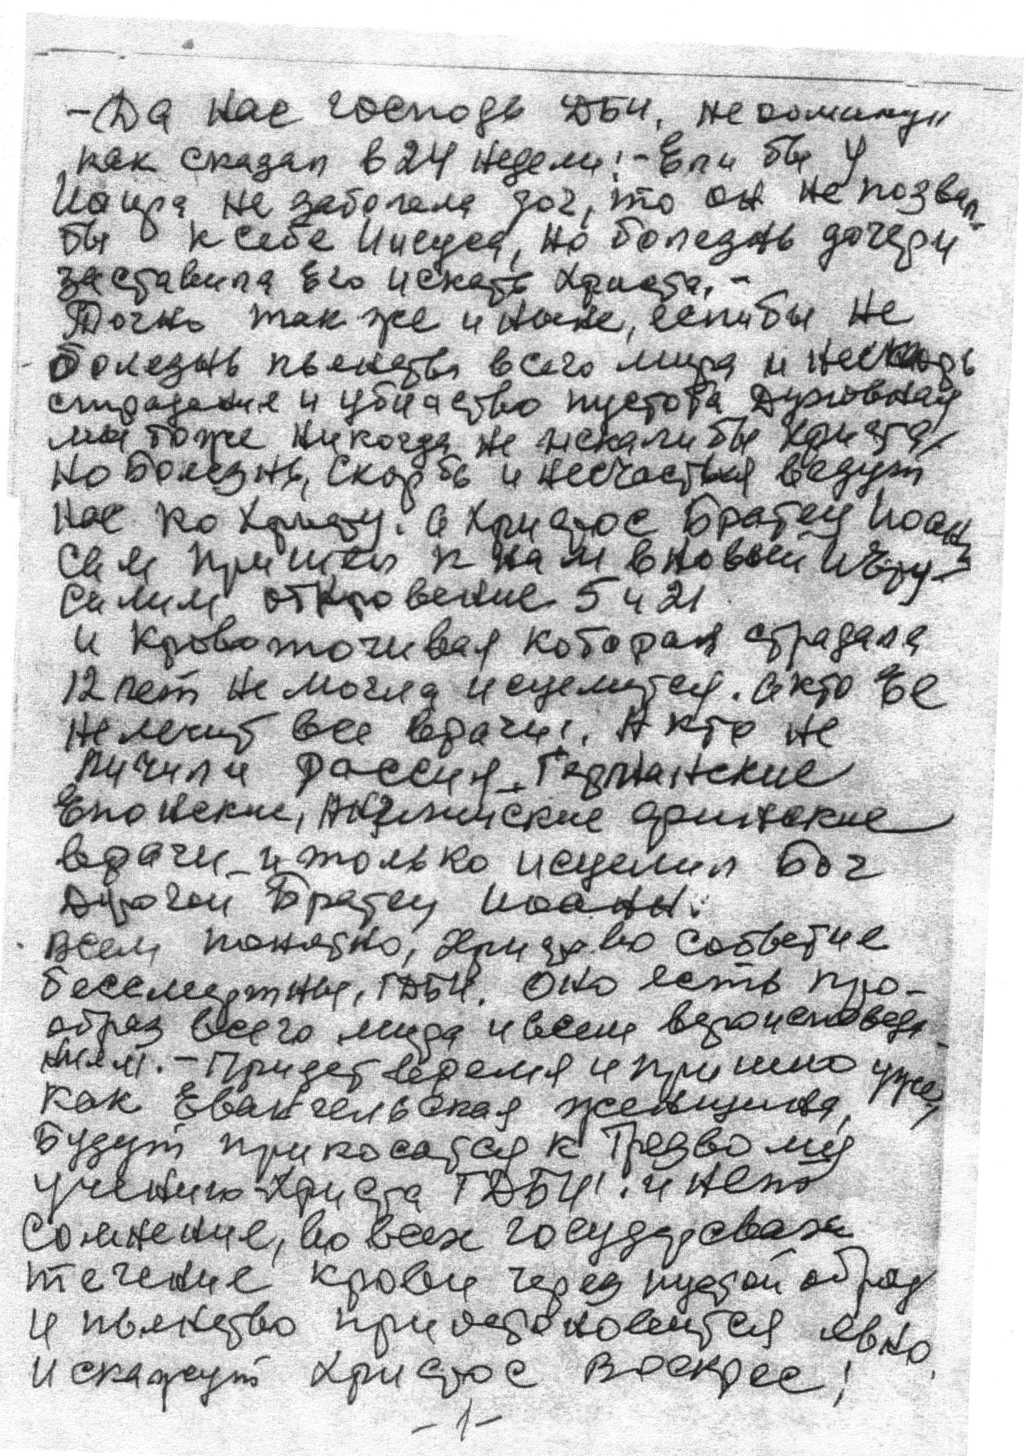 - Да нас господь ДБИ, не помину
как сказал в 24 недели! - Если бы у
Иаира не заболела доч, то он не позвал-
бы к себе Иисуса, но болезнь дочери
заставила Его искать Христа. -
Точно так же и ныне, еслибы не
болезнь пьянства всего мира и
страдание и убиаство пустота Духовная
мы тоже никогда не искалибы Христа,
Но Болезнь, Скорбь и несчастья ведут
нас ко Христу. а Христос Братец Иоанн
Сам пришел к нам в новый Иеру-
салим откровение 5 и 21
и кровоточивая которая страдала
12 лет не могла исцелится. а кто Ее
не лечит все врачи. А кто не
личили Россия, Германские
Епонские, Английские
врачи и только исцелил Бог
Дрогой Братец Иоанн.
всем понятно, Христово
бессмертные, ГДБИ. Оно есть про-
образ всего мира и всем вероисповеда-
ниям. - Придет время и пришло уже,
как Евангельская женщина,
Будут прикосатся к Трезвому
учению Христа ГДБИ! и нет
Сомнение, во всех госудрсвах
течение крови через пустой образ
и пьянство приостоновится явно
и скажут Христос Воскрес!
-1-